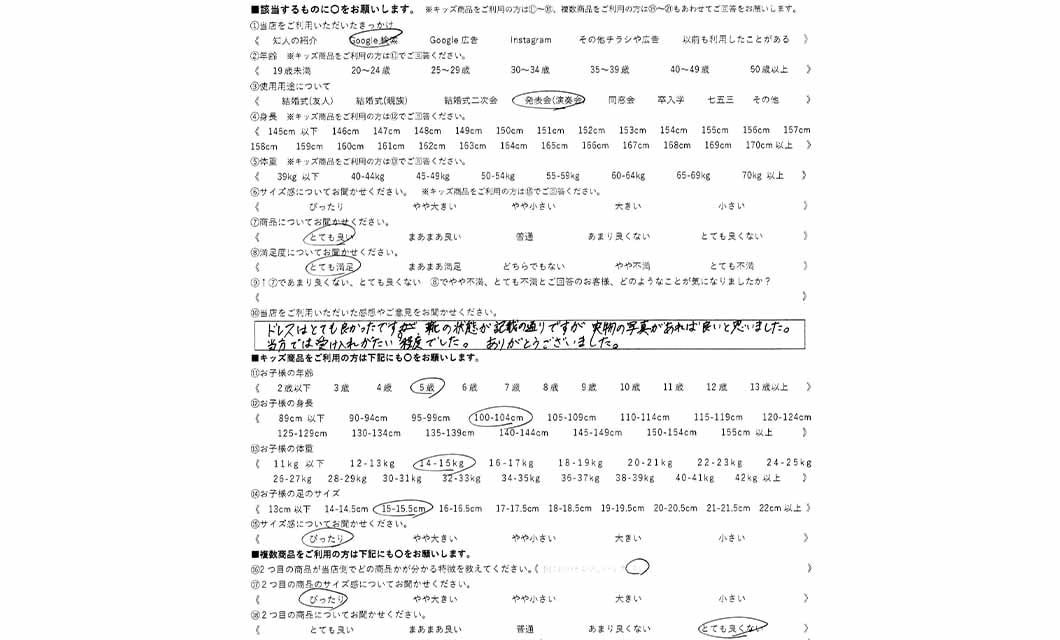 ■該当するものに〇をお願いします。 ※キッズ商品をご利用の方は⑪～⑮、複数商品をご利用の方は⑯～⑳もあわせてご回答をお願いします。
①当店をご利用いただいたきっかけ
《 知人の紹介 Google 検索 Google 広告 Instagram その他チラシや広告 以前も利用したことがある 》
②年齢 ※キッズ商品をご利用の方は⑪でご回答ください。
《 19歳未満 20～24歳 25～29歳 30～34歳 35～39歳 40～49歳 50歳以上 》
③使用用途について
《 結婚式(友人) 結婚式(親族) 結婚式二次会 発表会(演奏会) 同窓会 卒入学 七五三 その他 》
④身長 ※キッズ商品をご利用の方は⑫でご回答ください。
《 145cm 以下 146cm 147cm 148cm 149cm 150cm 151cm 152cm 153cm 154cm 155cm 156cm 157cm
158cm 159cm 160cm 161cm 162cm 163cm 164cm 165cm 166cm 167cm 168cm 169cm 170cm 以上 》
⑤体重 ※キッズ商品をご利用の方は⑬でご回答ください。
《 39kg 以下 40-44kg 45-49kg 50-54kg 55-59kg 60-64kg 65-69kg 70kg 以上 》
⑥サイズ感についてお聞かせください。 ※キッズ商品をご利用の方は⑮でご回答ください。
《 ぴったり やや大きい やや小さい 大きい 小さい 》
⑦商品についてお聞かせください。
《 とても良い まあまあ良い 普通 あまり良くない とても良くない 》
⑧満足度についてお聞かせください。
《 とても満足 まあまあ満足 どちらでもない やや不満 とても不満 》
⑨↑⑦であまり良くない、とても良くない ⑧でやや不満、とても不満とご回答のお客様、どのようなことが気になりましたか？
《 》
⑩当店をご利用いただいた感想やご意見をお聞かせください。
ドレスはとても良かったですが 靴の状態が記載の通りですが 実物の写真があれば良いと思いました。
当方では受け入れがたい程度でした。 ありがとうございました。
■キッズ商品をご利用の方は下記にも〇をお願いします。
⑪お子様の年齢
《 2歳以下 3歳 4歳 5歳 6歳 7歳 8歳 9歳 10歳 11歳 12歳 13歳以上 》
⑫お子様の身長
《 89cm 以下 90-94cm 95-99cm 100-104cm 105-109cm 110-114cm 115-119cm 120-124cm
125-129cm 130-134cm 135-139cm 140-144cm 145-149cm 150-154cm 155cm 以上 》
⑬お子様の体重
《 11kg 以下 12-13kg 14-15kg 16-17kg 18-19kg 20-21kg 22-23kg 24-25kg
26-27kg 28-29kg 30-31kg 32-33kg 34-35kg 36-37kg 38-39kg 40-41kg 42kg 以上 》
⑭お子様の足のサイズ
《 13cm以下 14-14.5cm 15-15.5cm 16-16.5cm 17-17.5cm 18-18.5cm 19-19.5cm 20-20.5cm 21-21.5cm 22cm以上 》
⑮サイズ感についてお聞かせください。
《 ぴったり やや大きい やや小さい 大きい 小さい 》
■複数商品をご利用の方は下記にも〇をお願いします。
⑯2つ目の商品が当店側でどの商品かが分かる特徴を教えてください。《 》
⑰2つ目の商品のサイズ感についてお聞かせください。
《 ぴったり やや大きい やや小さい 大きい 小さい 》
⑱2つ目の商品についてお聞かせください。
《 とても良い まあまあ良い 普通 あまり良くない とても良くない 》